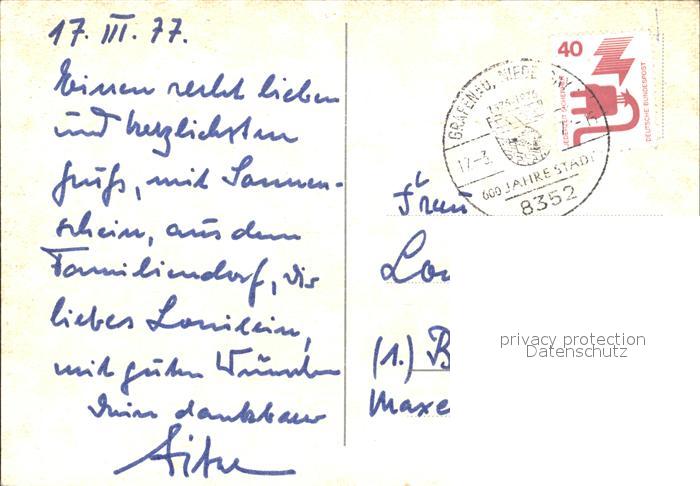 17. III. 77.
Einen recht lieben
und herzlichsten
Gruß, mit Sonnen-
schein, aus dem
Familiendorf, dir
liebes
mit guten Wünschen
Dein dankbarer
40
JEDERZEIT SICHERHEIT
DEUTSCHE BUNDESPOST
GRAFENAU, NIEDERBAY
1376-1976
17.-3.
600 JAHRE STADT
8352
Frau
Lou
(1.) B
Maxe
privacy protection
Datenschutz